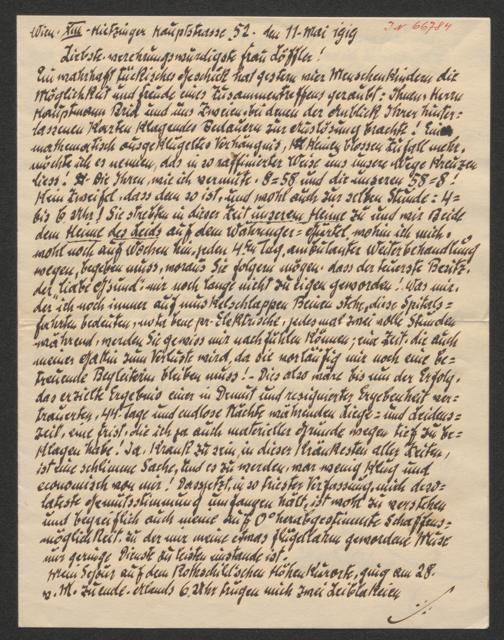 Wien. XIII. Hietzinger Hauptstrasse 52. den 11. Mai 1919 I.N. 66784
Liebste verehrungswürdigste Frau Löffler!
Ein wahrhaft tückisches Geschick hat gestern vier Menschenkindern die
Möglichkeit und Freude eines Zusammentreffens geraubt: Ihnen, Herrn
Hauptmann und uns Zweien, bei denen der Anblick Ihrer hinter-
lassenen Karten klagendes Bedauern zur Auslösung brachte! Ein
mathematisch ausgeklügeltes Verhängnis, keinen blossen Zufall mehr,
möchte ich es nennen, das in so raffinierter Weise uns unsere Wege kreuzen
liess! Die Ihren, wie ich vermute, 8=58 und die unseren 58=8!
Kein Zweifel, dass dem so ist, und wohl auch zur selben Stunde: 4=
bis 6 Uhr! Sie strebten in dieser Zeit unserem Heime zu und wir Beide
dem Heime des Leids auf dem Währinger-, wohin ich mich,
wohl noch auf Wochen hin, jeden 4ten Tag, ambulanter Weiterbehandlung
wegen, begeben muss, woraus Sie folgern mögen, dass der teuerste Besitz,
der "liabe G'sund" mir noch lange nicht zu eigen geworden! Was mir,
der ich noch immer auf muskelschlappen Beinen stehe, diese Spitals-
fahrten bedeuten, nota bene per Elektrische, jedesmal zwei volle Stunden
während, werden Sie gewiss mir nachfühlen können; eine Zeit, die auch
meiner Gattin zum Verluste wird, da sie vorläufig mir noch eine be-
treuende Begleiterin bleiben muss! Dies also wäre bis nun der Erfolg,
das erzielte Ergebnis einer in Demut und resignierter Ergebenheit ver-
trauerten, 44 Tage und endlose Nächte währenden Liege= und Leidens-
zeit, eine Frist, die ich ja auch materieller Gründe wegen tief zu be-
klagen habe! Ja, krank zu sein, in dieser kränkesten aller Zeiten,
ist eine schlimme Sache, und es zu werden, war wenig klug und
economisch von mir! Dass jetzt, in so triester Verfassung, mich deso-
lateste Gemütsstimmung umfangen hält, ist wohl zu verstehen
und begreiflich auch meine auf 0° herabgestimmte Schaffens-
möglichkeit, zu der nur meine etwas flügellahm gewordene Muse
nur geringe Dienste zu leisten imstande ist!
Mein Sejour auf dem Rothschild'schen Höhenkurorte, ging am 28.
v. M. zu ende. Abends 6 Uhr trugen mich zwei Leiblakeien